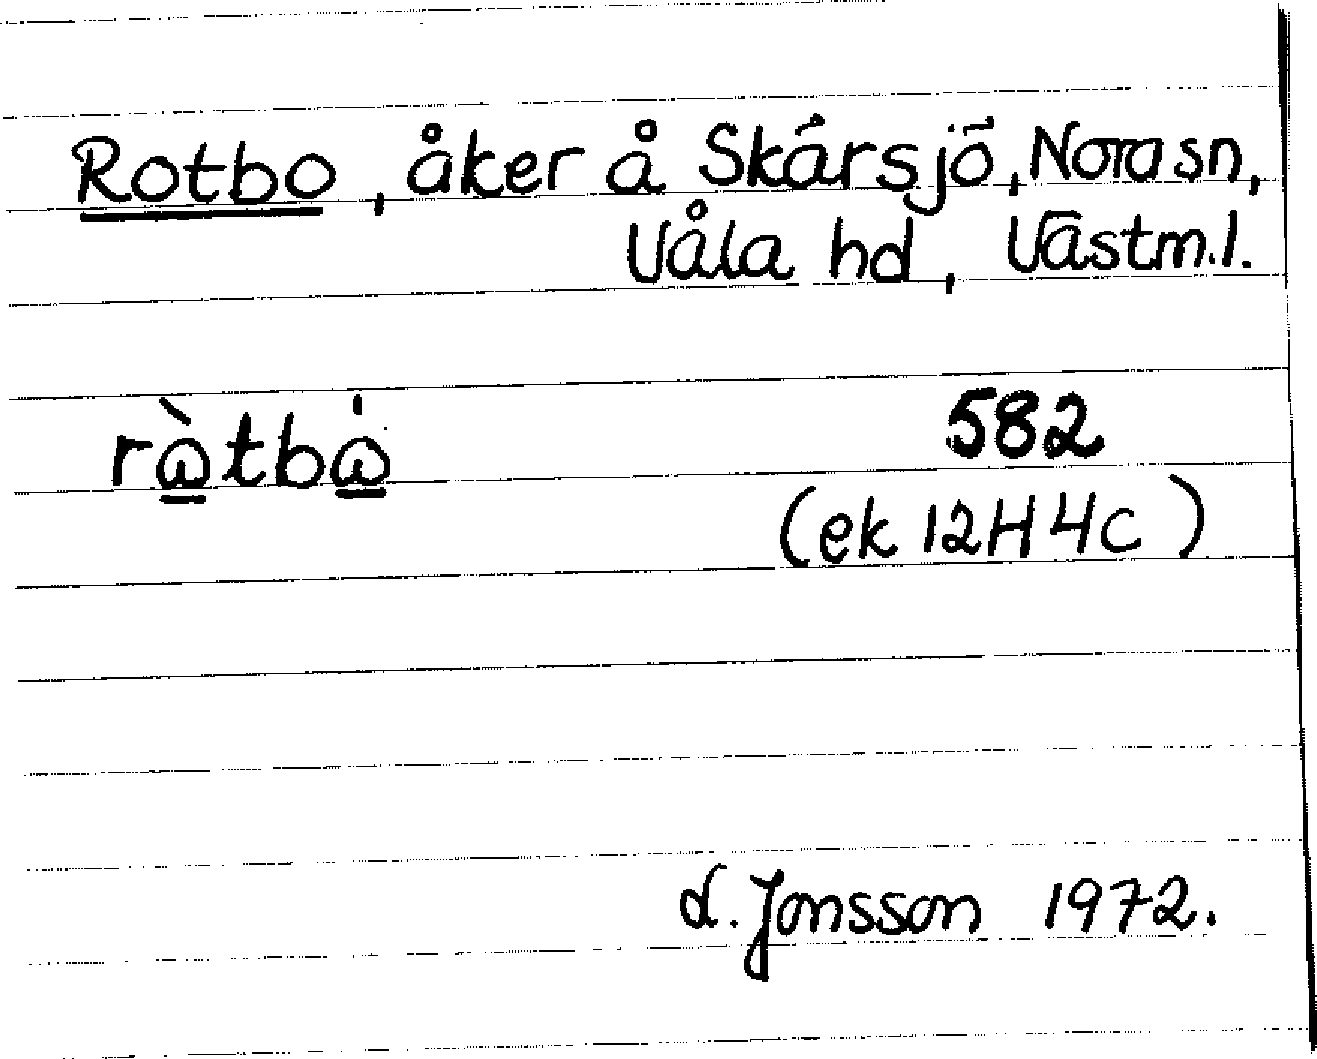 Rotbo, åker å Skärsjö, Nora sn,
Våla hd, Västm.l.
582
(ek 12H4c)
d. Jonsson 1972.